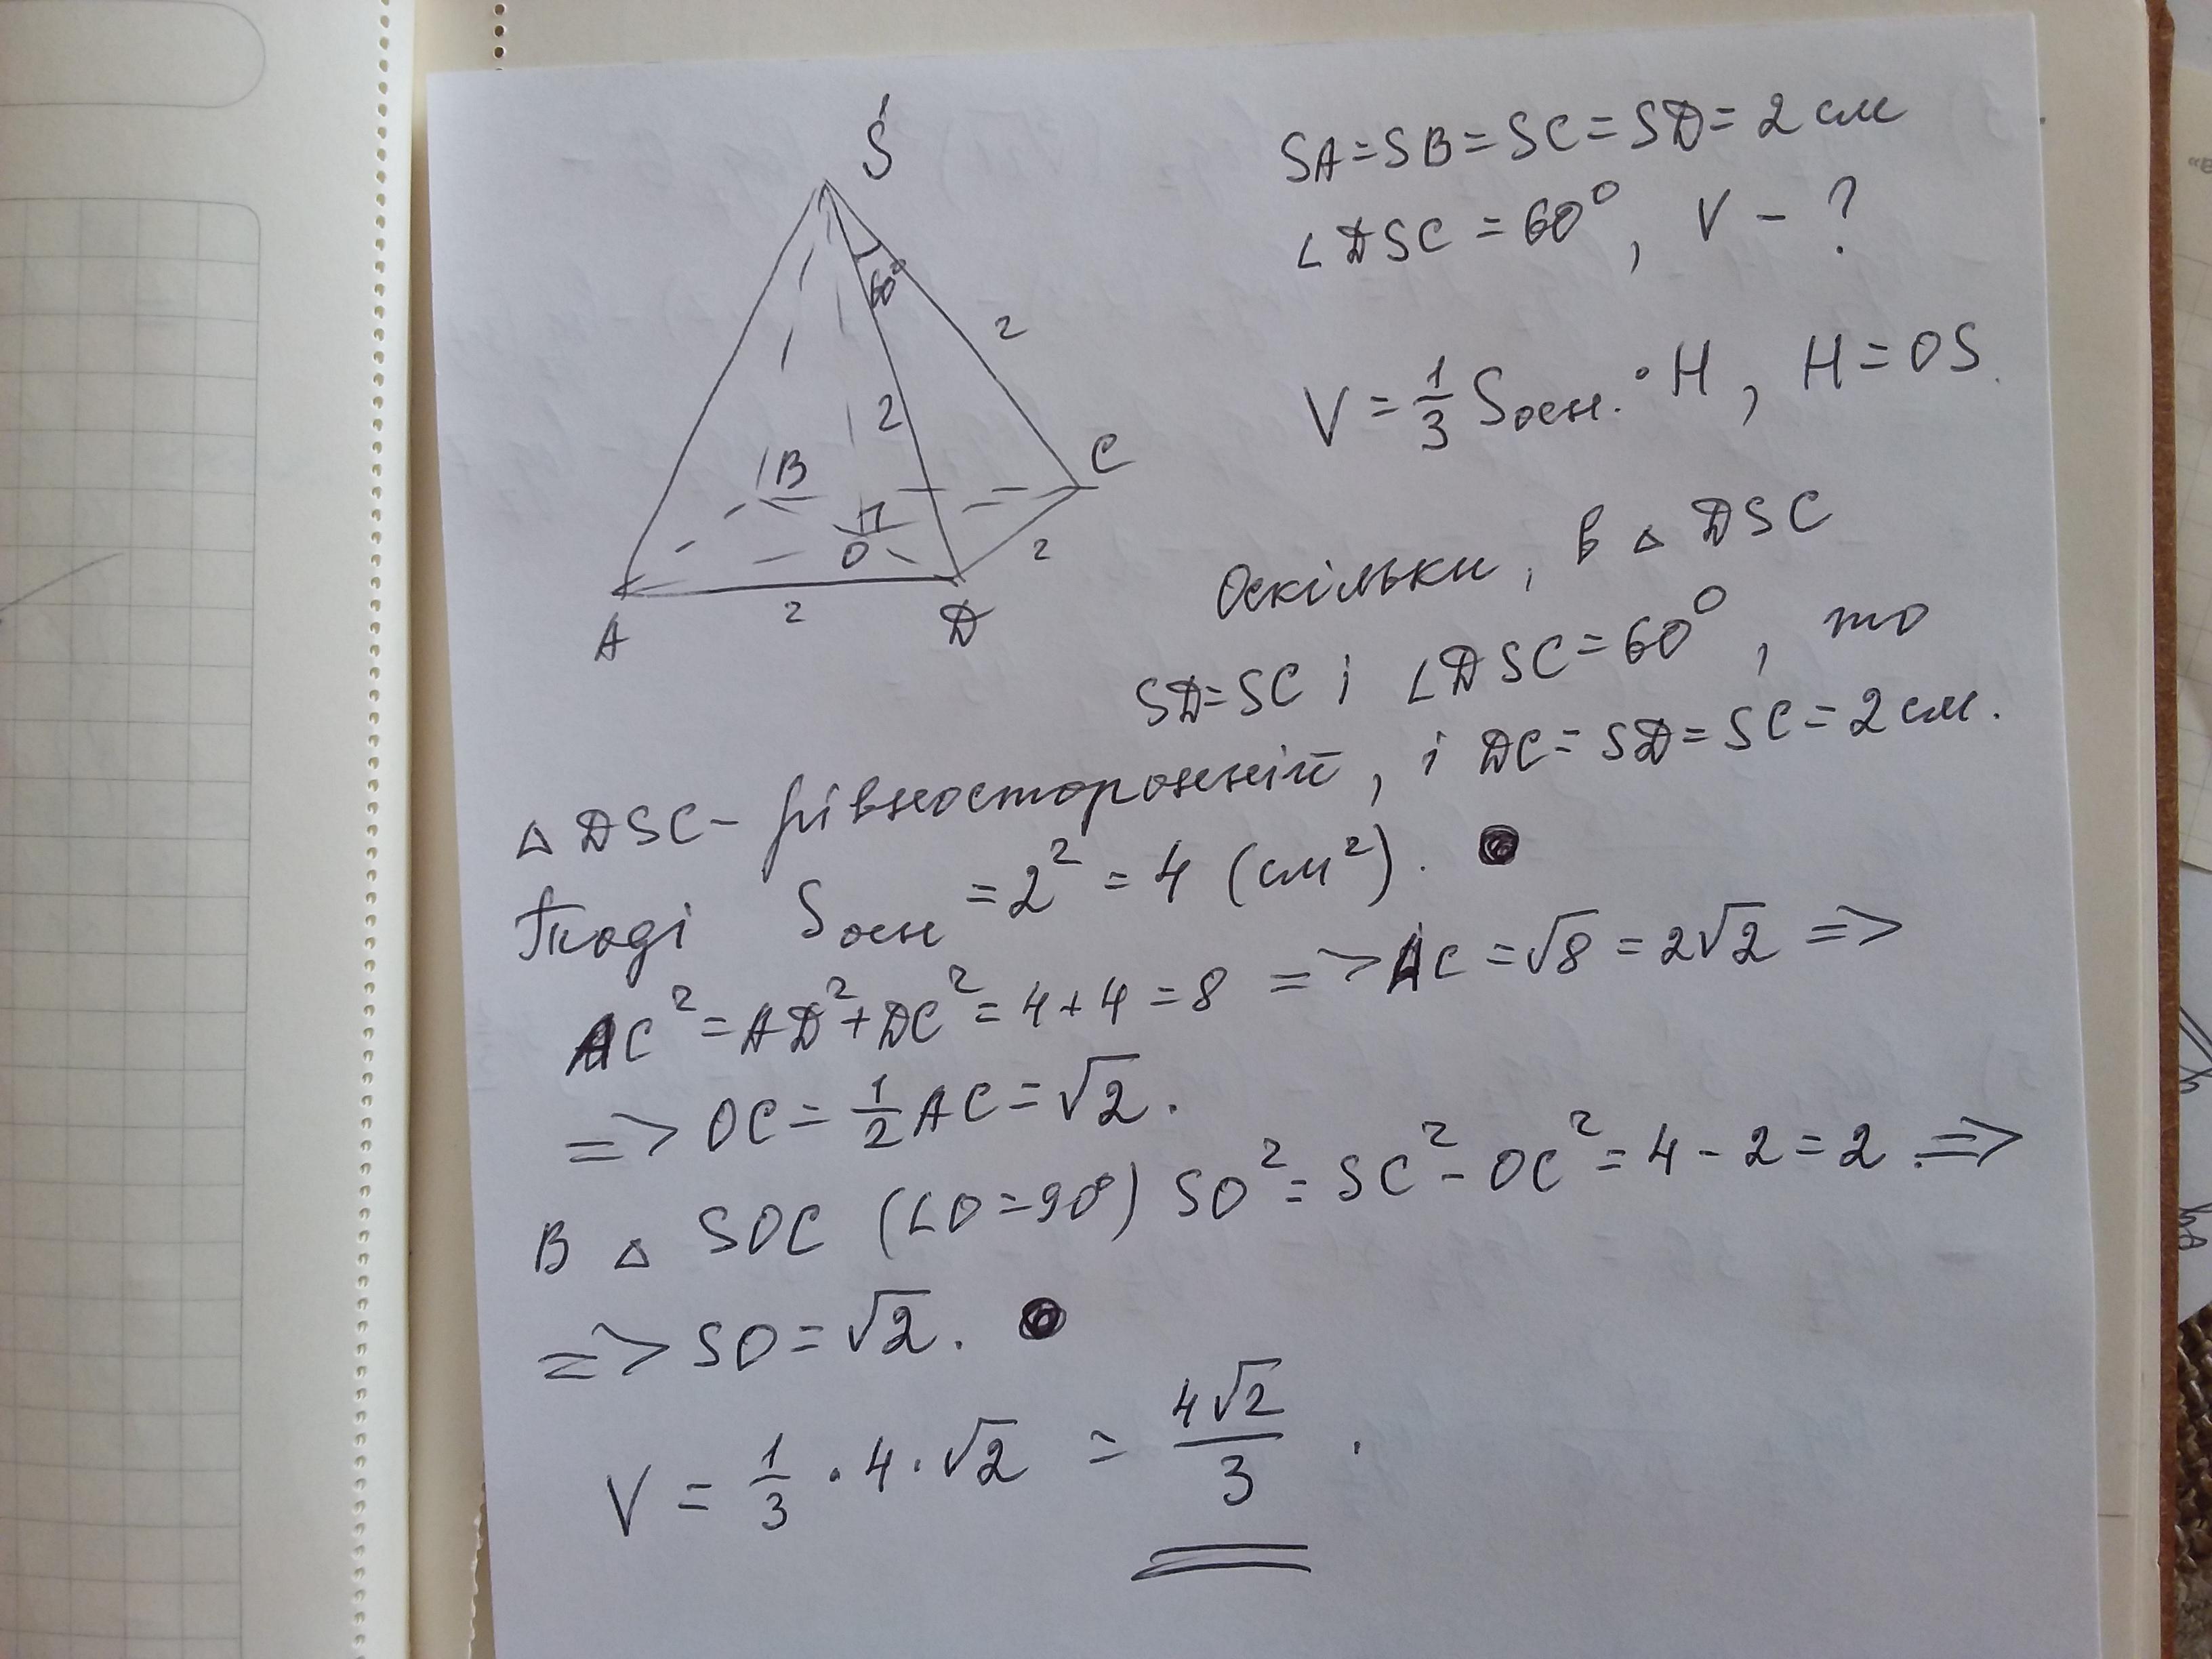 S
60°
2
2
B
C
O
2
2
A
D
SA=SB=SC=SD=2см
∠DSC=60°, V-?
V=1/3 Sосн.·H, H=OS
Оскільки, в △DSC
SD=SC і ∠DSC=60°, то
△DSC-рівносторонній, і DC=SD=SC=2см.
Тоді Sосн=2²=4 (см²).
AC²=AD²+DC²=4+4=8 => AC=√8=2√2 =>
=> OC=1/2AC=√2.
В △ SOC (∠O=90°) SO²=SC²-OC²=4-2=2 =>
=> SO=√2.
V=1/3·4·√2=4√2/3.